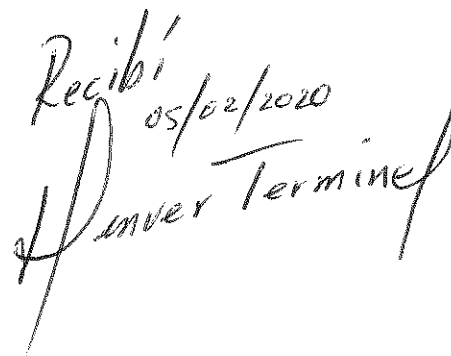 Recibí
05/02/2020
Denver Terminel